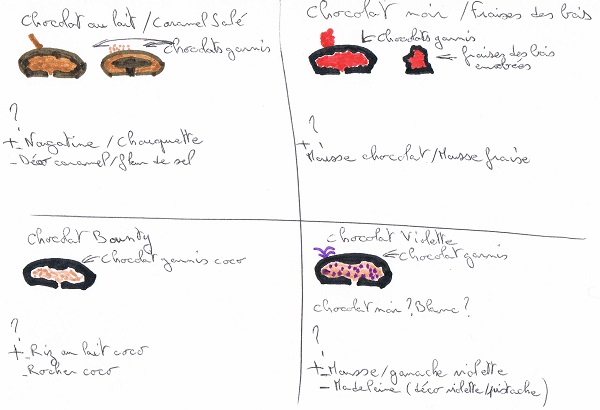 Chocolat au lait / Caramel Salé
Chocolats garnis
?
+ - Nougatine / Chouquette
- Déco caramel / fleur de sel
Chocolat noir / Fraises des bois
Chocolats garnis
fraises des bois
enrobées
?
+ Mousse chocolat / Mousse fraise
Chocolat Bounty
Chocolat garnis coco
?
+ - Riz au lait coco
- Rocher coco
Chocolat Violette
Chocolat garnis
Chocolat noir ? Blanc ?
?
+ - Mousse / ganache violette
- Madeleine (déco violette / pistache)